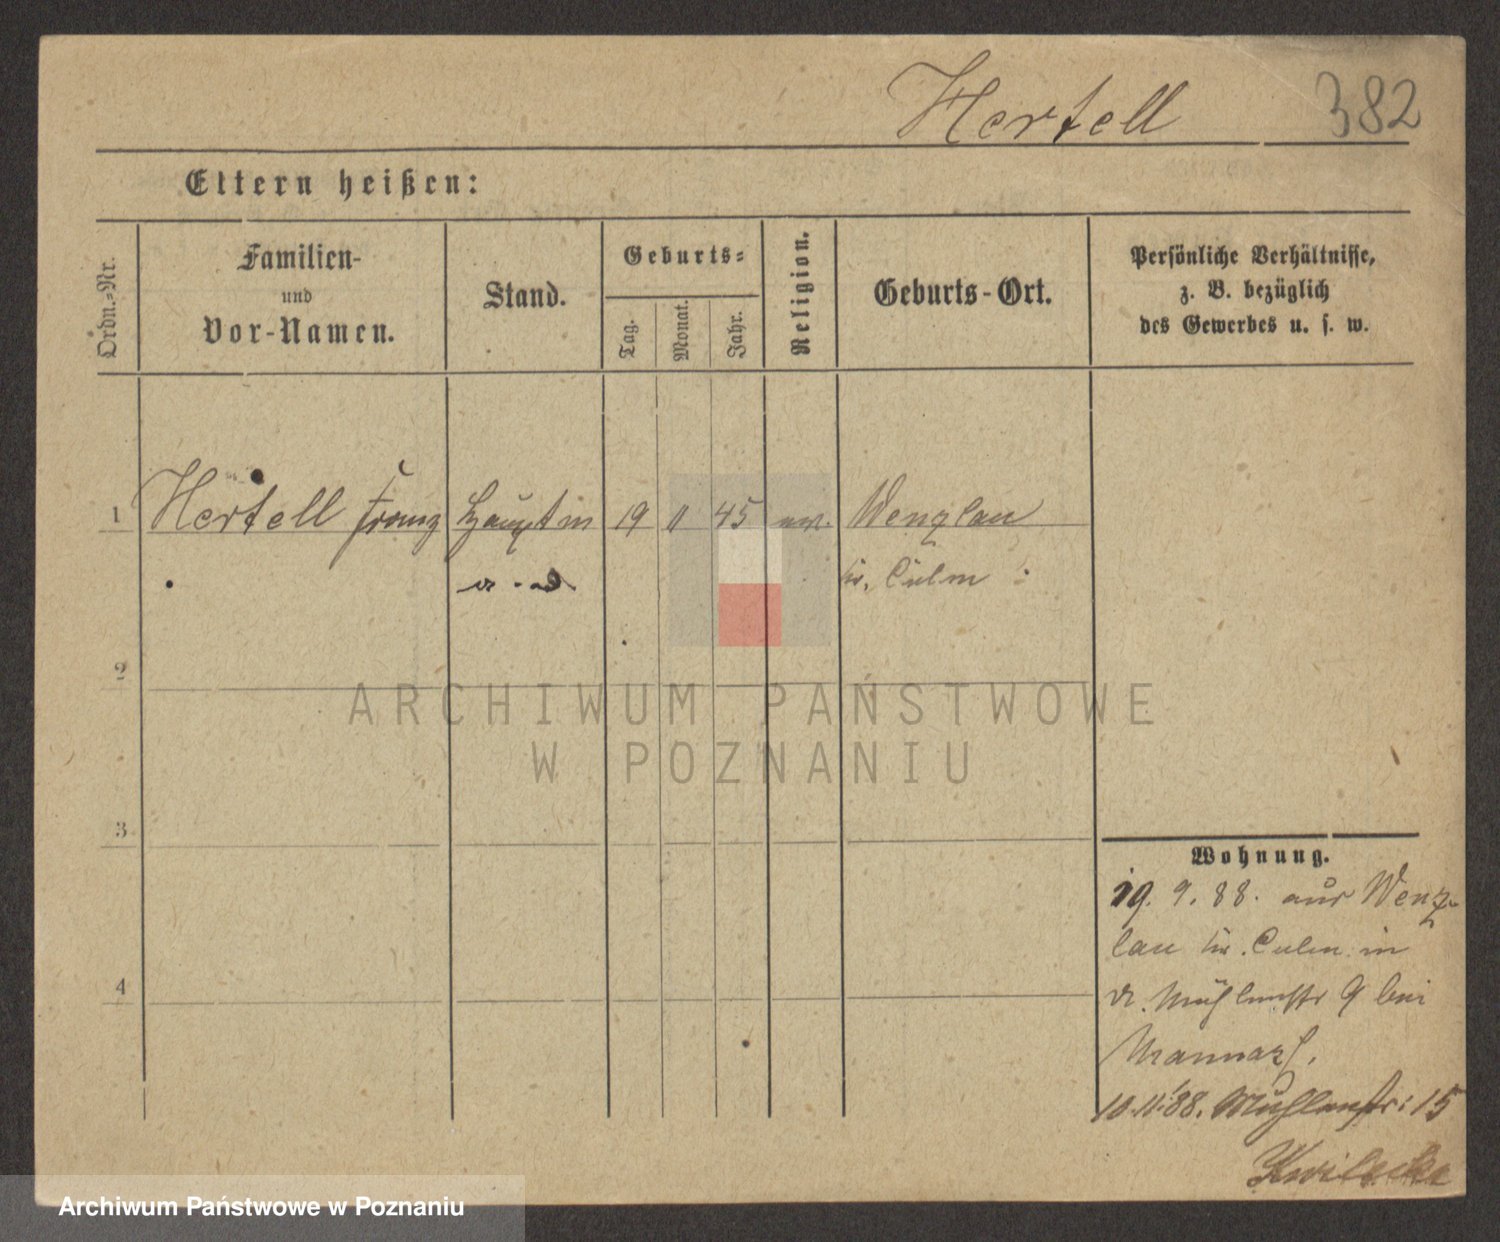 Hertell 382
Eltern heißen:
Ordn.=Nr.
Familien-
und
Vor-Namen.
Stand.
Geburts=
Tag.
Monat.
Jahr.
Religion.
Geburts-Ort.
Persönliche Verhältnisse,
z. B. bezüglich
des Gewerbes u. s. w.
1 Hertell Franz Hauptm 19 11 45 ev. Wenzlau
a. D. Kr. Culm
2
3
4
Wohnung.
19. 9. 88. aus Wenz-
lau Kr. Culm in
Mühlenstr 9 bei
10.11.88. Mühlenstr: 15
Kwilecki
ARCHIWUM PAŃSTWOWE
W POZNANIU
Archiwum Państwowe w Poznaniu